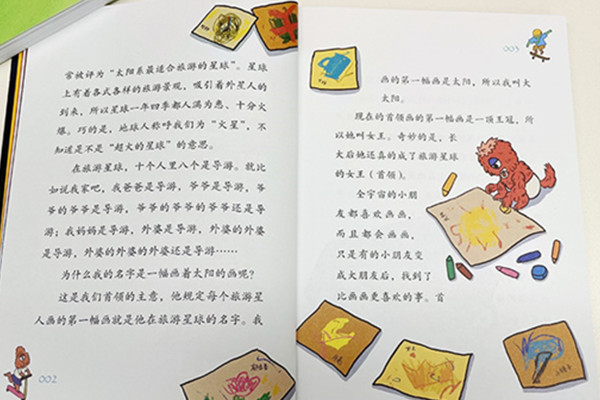 常被评为“太阳系最适合旅游的星球”。星球
上有着各式各样的旅游景观，吸引着外星人的
到来，所以星球一年四季都人满为患、十分火
爆。巧的是，地球人称呼我们为“火星”，不
知道是不是“超火的星球”的意思。
在旅游星球，十个人里八个是导游。就比
如说我家吧，我爸爸是导游，爷爷是导游，爷
爷的爷爷是导游，爷爷的爷爷的爷爷还是导
游；我妈妈是导游，外婆是导游，外婆的外婆
是导游，外婆的外婆的外婆还是导游……
为什么我的名字是一幅画着太阳的画呢？
这是我们首领的主意，他规定每个旅游星
人画的第一幅画就是他在旅游星球的名字。我
002
003
画的第一幅画是太阳，所以我叫大
太阳。
现在的首领画的第一幅画是一顶王冠，所
以她叫女王。奇妙的是，长
大后她还真的成了旅游星球
的女王（首领）。
全宇宙的小朋
友都喜欢画画，
而且都会画画，
只是有的小朋友变
成大朋友后，找到了
比画画更喜欢的事。首